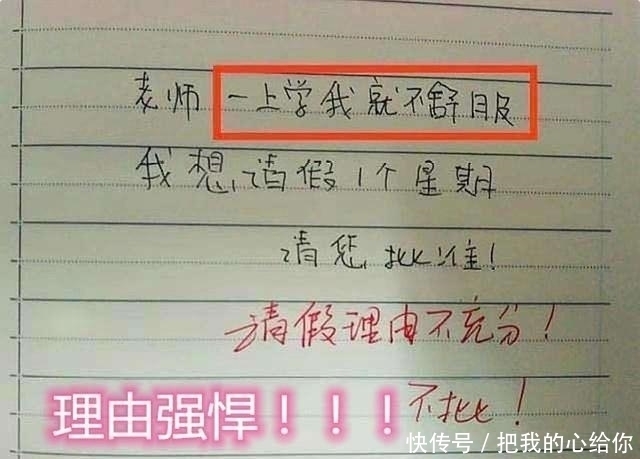 老师一上学我就不舒服
我想请假1个星期
请您批准！
请假理由不充分！
不批！
理由强悍！！！
快传号／把我的心给你